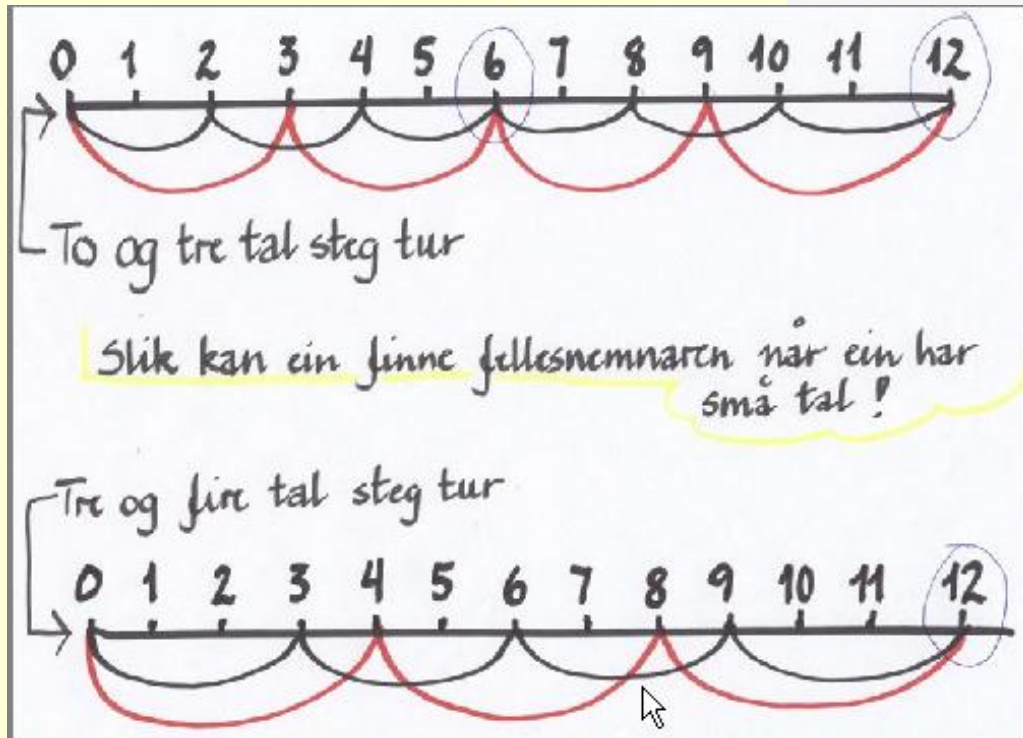 0 1 2 3 4 5 6 7 8 9 10 11 12
To og tre tal steg tur
Slik kan ein finne fellesnemnaren når ein har
små tal !
Tre og fire tal steg tur
0 1 2 3 4 5 6 7 8 9 10 11 12